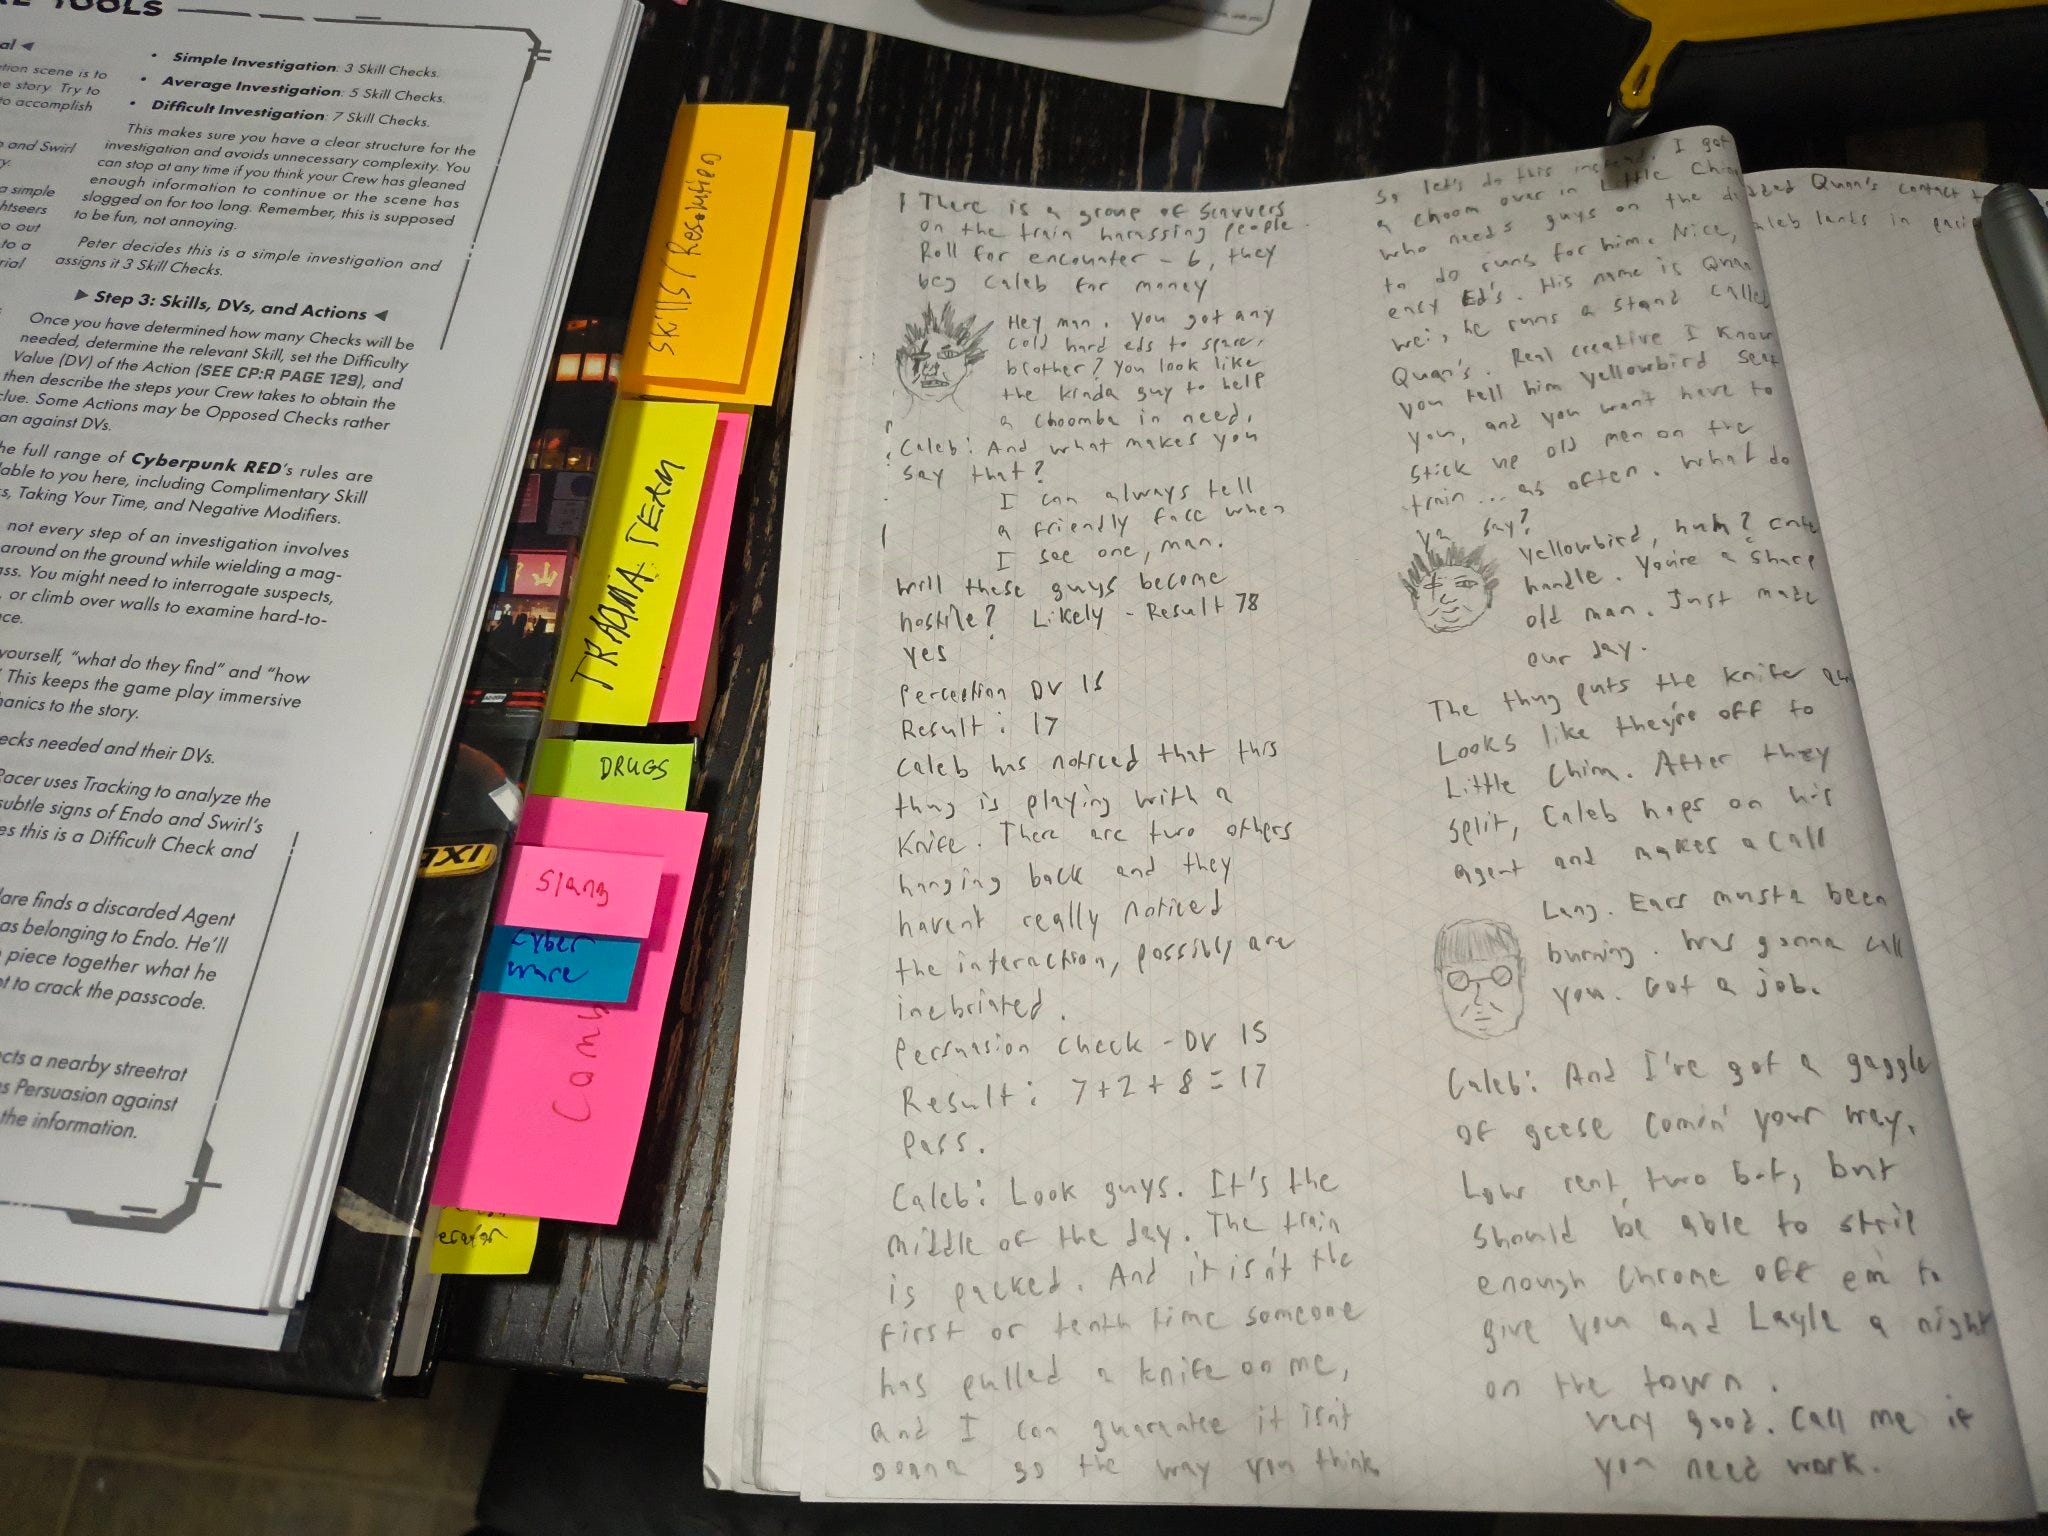 TOOLS
• Simple Investigation: 3 Skill Checks.
• Average Investigation: 5 Skill Checks.
• Difficult Investigation: 7 Skill Checks.
This makes sure you have a clear structure for the
investigation and avoids unnecessary complexity. You
can stop at any time if you think your Crew has gleaned
enough information to continue or the scene has
slogged on for too long. Remember, this is supposed
to be fun, not annoying.
Peter decides this is a simple investigation and
assigns it 3 Skill Checks.
▶ Step 3: Skills, DVs, and Actions ◀
Once you have determined how many Checks will be
needed, determine the relevant Skill, set the Difficulty
Value (DV) of the Action (SEE CP:R PAGE 129), and
then describe the steps your Crew takes to obtain the
clue. Some Actions may be Opposed Checks rather
an against DVs.
he full range of Cyberpunk RED's rules are
lable to you here, including Complimentary Skill
s, Taking Your Time, and Negative Modifiers.
not every step of an investigation involves
around on the ground while wielding a mag-
ass. You might need to interrogate suspects,
, or climb over walls to examine hard-to-
ce.
yourself, "what do they find" and "how
This keeps the game play immersive
hanics to the story.
ecks needed and their DVs.
Racer uses Tracking to analyze the
subtle signs of Endo and Swirl's
es this is a Difficult Check and
lare finds a discarded Agent
as belonging to Endo. He'll
piece together what he
pt to crack the passcode.
ects a nearby streetrat
s Persuasion against
the information.
al ◀
tion scene is to
e story. Try to
to accomplish
and Swirl
ry.
a simple
htseers
o out
to a
rial
Skills/Resolution
TRAUMA TEAM
DRUGS
Slang
Cyber
ware
Comb
erator
IXE
There is a group of scavvers
on the train harassing people.
Roll for encounter - 6, they
beg Caleb for money
Hey man. You got any
cold hard eds to spare,
brother? You look like
the kinda guy to help
a Choomba in need.
Caleb: And what makes you
say that?
I can always tell
a friendly face when
I see one, man.
Will these guys become
hostile? Likely - Result 78
yes
Perception DV 15
Result: 17
Caleb has noticed that this
thug is playing with a
knife. There are two others
hanging back and they
havent really noticed
the interaction, possibly are
inebriated.
Persuasion check - DV 15
Result: 7+2+8=17
Pass.
Caleb: Look guys. It's the
middle of the day. The train
is packed. And it isn't the
first or tenth time someone
has pulled a knife on me,
and I can guarantee it isnt
gonna go the way you think.
So let's do this instead. I got
a choom over in Little Chin
who needs guys on the
to do runs for him. Nice,
easy Ed's. His name is Quan
wei, he runs a stand called
Quan's. Real creative I know
You tell him yellowbird sent
you, and you wont have to
stick up old men on the
train... as often. What do
ya say?
Yellowbird, huh? cute
handle. You're a sharp
old man. Just made
our day.
The thug puts the knife
Looks like they're off to
Little China. After they
split, Caleb hops on his
agent and makes a call
Lang. Ears musta been
burning. Was gonna call
you. Got a job.
Caleb: And I've got a gaggle
of geese comin' your way.
Low rent, two bit, but
should be able to strip
enough chrome off em to
give you and Layle a night
on the town.
Very good. Call me if
you need work.
Quan's contact
Caleb
in